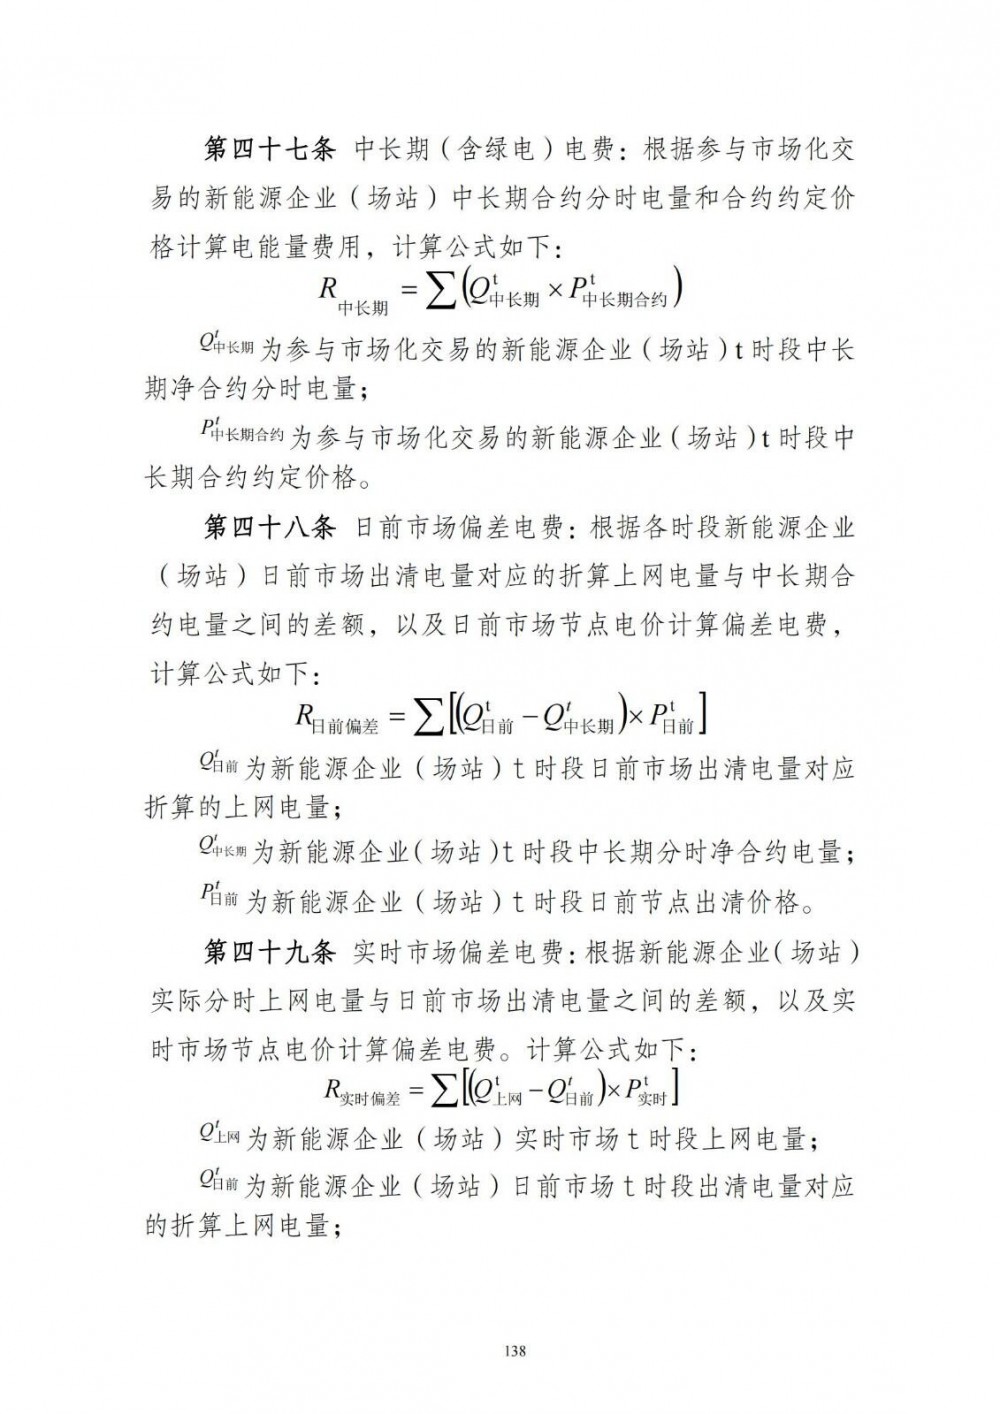 第四十七条 中长期（含绿电）电费：根据参与市场化交
易的新能源企业（场站）中长期合约分时电量和合约约定价
格计算电能量费用，计算公式如下：
R中长期 = ∑(Q^t中长期 × P^t中长期合约)
Q^t中长期 为参与市场化交易的新能源企业（场站）t 时段中长
期净合约分时电量；
P^t中长期合约 为参与市场化交易的新能源企业（场站）t 时段中
长期合约约定价格。
第四十八条 日前市场偏差电费：根据各时段新能源企业
（场站）日前市场出清电量对应的折算上网电量与中长期合
约电量之间的差额，以及日前市场节点电价计算偏差电费，
计算公式如下：
R日前偏差 = ∑[(Q^t日前 − Q^t中长期) × P^t日前]
Q^t日前 为新能源企业（场站）t 时段日前市场出清电量对应
折算的上网电量；
Q^t中长期 为新能源企业（场站）t 时段中长期分时净合约电量；
P^t日前 为新能源企业（场站）t 时段日前节点出清价格。
第四十九条 实时市场偏差电费：根据新能源企业（场站）
实际分时上网电量与日前市场出清电量之间的差额，以及实
时市场节点电价计算偏差电费。计算公式如下：
R实时偏差 = ∑[(Q^t上网 − Q^t日前) × P^t实时]
Q^t上网 为新能源企业（场站）实时市场 t 时段上网电量；
Q^t日前 为新能源企业（场站）日前市场 t 时段出清电量对应
的折算上网电量；
138